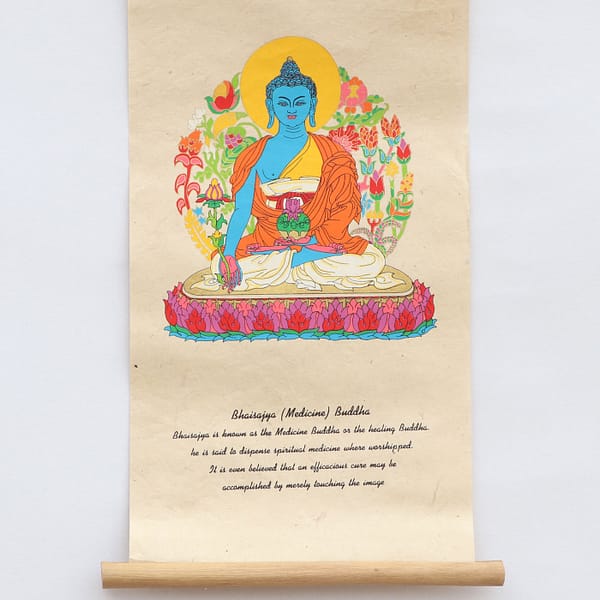 Bhaisajya (Medicine) Buddha
Bhaisajya is known as the Medicine Buddha or the healing Buddha.
he is said to dispense spiritual medicine where worshipped.
It is even believed that an efficacious cure may be
accomplished by merely touching the image